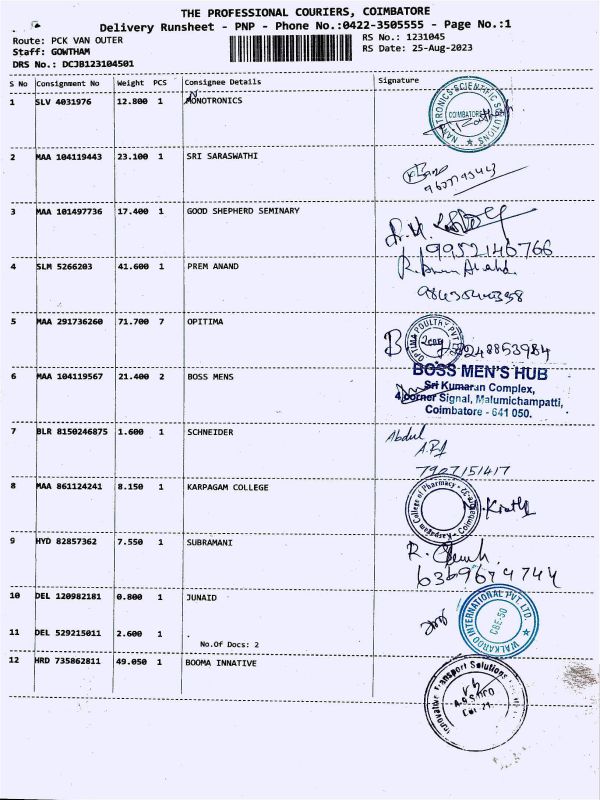 THE PROFESSIONAL COURIERS, COIMBATORE
Delivery Runsheet - PNP - Phone No.:0422-3505555 - Page No.:1
Route: PCK VAN OUTER RS No.: 1231045
Staff: GOWTHAM RS Date: 25-Aug-2023
DRS No.: DCJB123104501
S No Consignment No Weight PCS Consignee Details Signature
1 SLV 4031976 12.800 1 NONOTRONICS
NANOTRONICS SCIENTIFIC SOLUTIONS
COIMBATORE
2 MAA 104119443 23.100 1 SRI SARASWATHI
3 MAA 101497736 17.400 1 GOOD SHEPHERD SEMINARY
19952146766
4 SLM 5266203 41.600 1 PREM ANAND
R. Prem Anand
5 MAA 291736260 71.700 7 OPITIMA
OPTIMA POULTRY PVT LTD
6 MAA 104119567 21.400 2 BOSS MENS
BOSS MEN'S HUB
Sri Kumaran Complex,
4,corner Signal, Malumichampatti,
Coimbatore - 641 050.
7 BLR 8150246875 1.600 1 SCHNEIDER
Abdul
7907151417
8 MAA 861124241 8.150 1 KARPAGAM COLLEGE
Karpagam College of Pharmacy
9 HYD 82857362 7.550 1 SUBRAMANI
6369674744
10 DEL 120982181 0.800 1 JUNAID
WALKAROO INTERNATIONAL PVT LTD.
CBE-50
11 DEL 529215011 2.600 1
No.Of Docs: 2
12 HRD 735862811 49.050 1 BOOMA INNATIVE
Innovative Transport Solutions